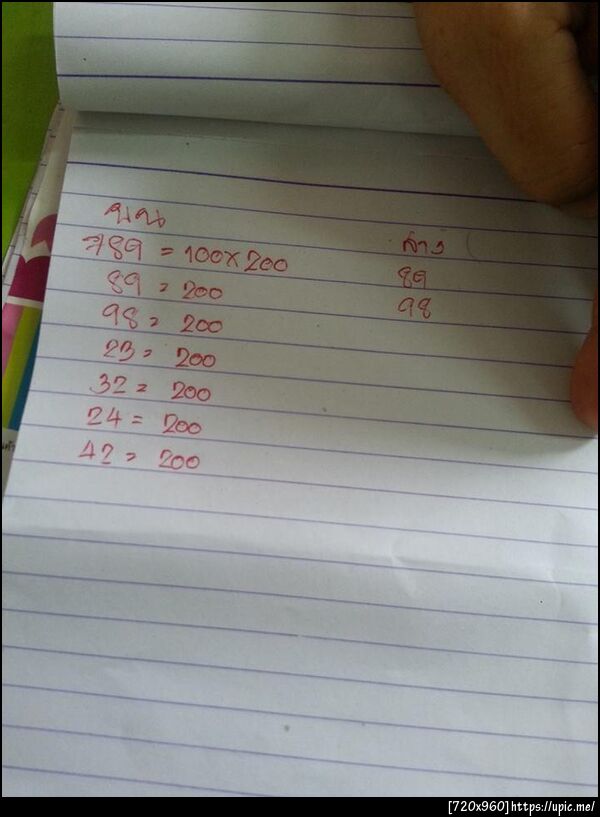 บน
789 = 100×200
89 = 200
98 = 200
23 = 200
32 = 200
24 = 200
42 = 200
ล่าง
89
98
[720x960]https://upic.me/